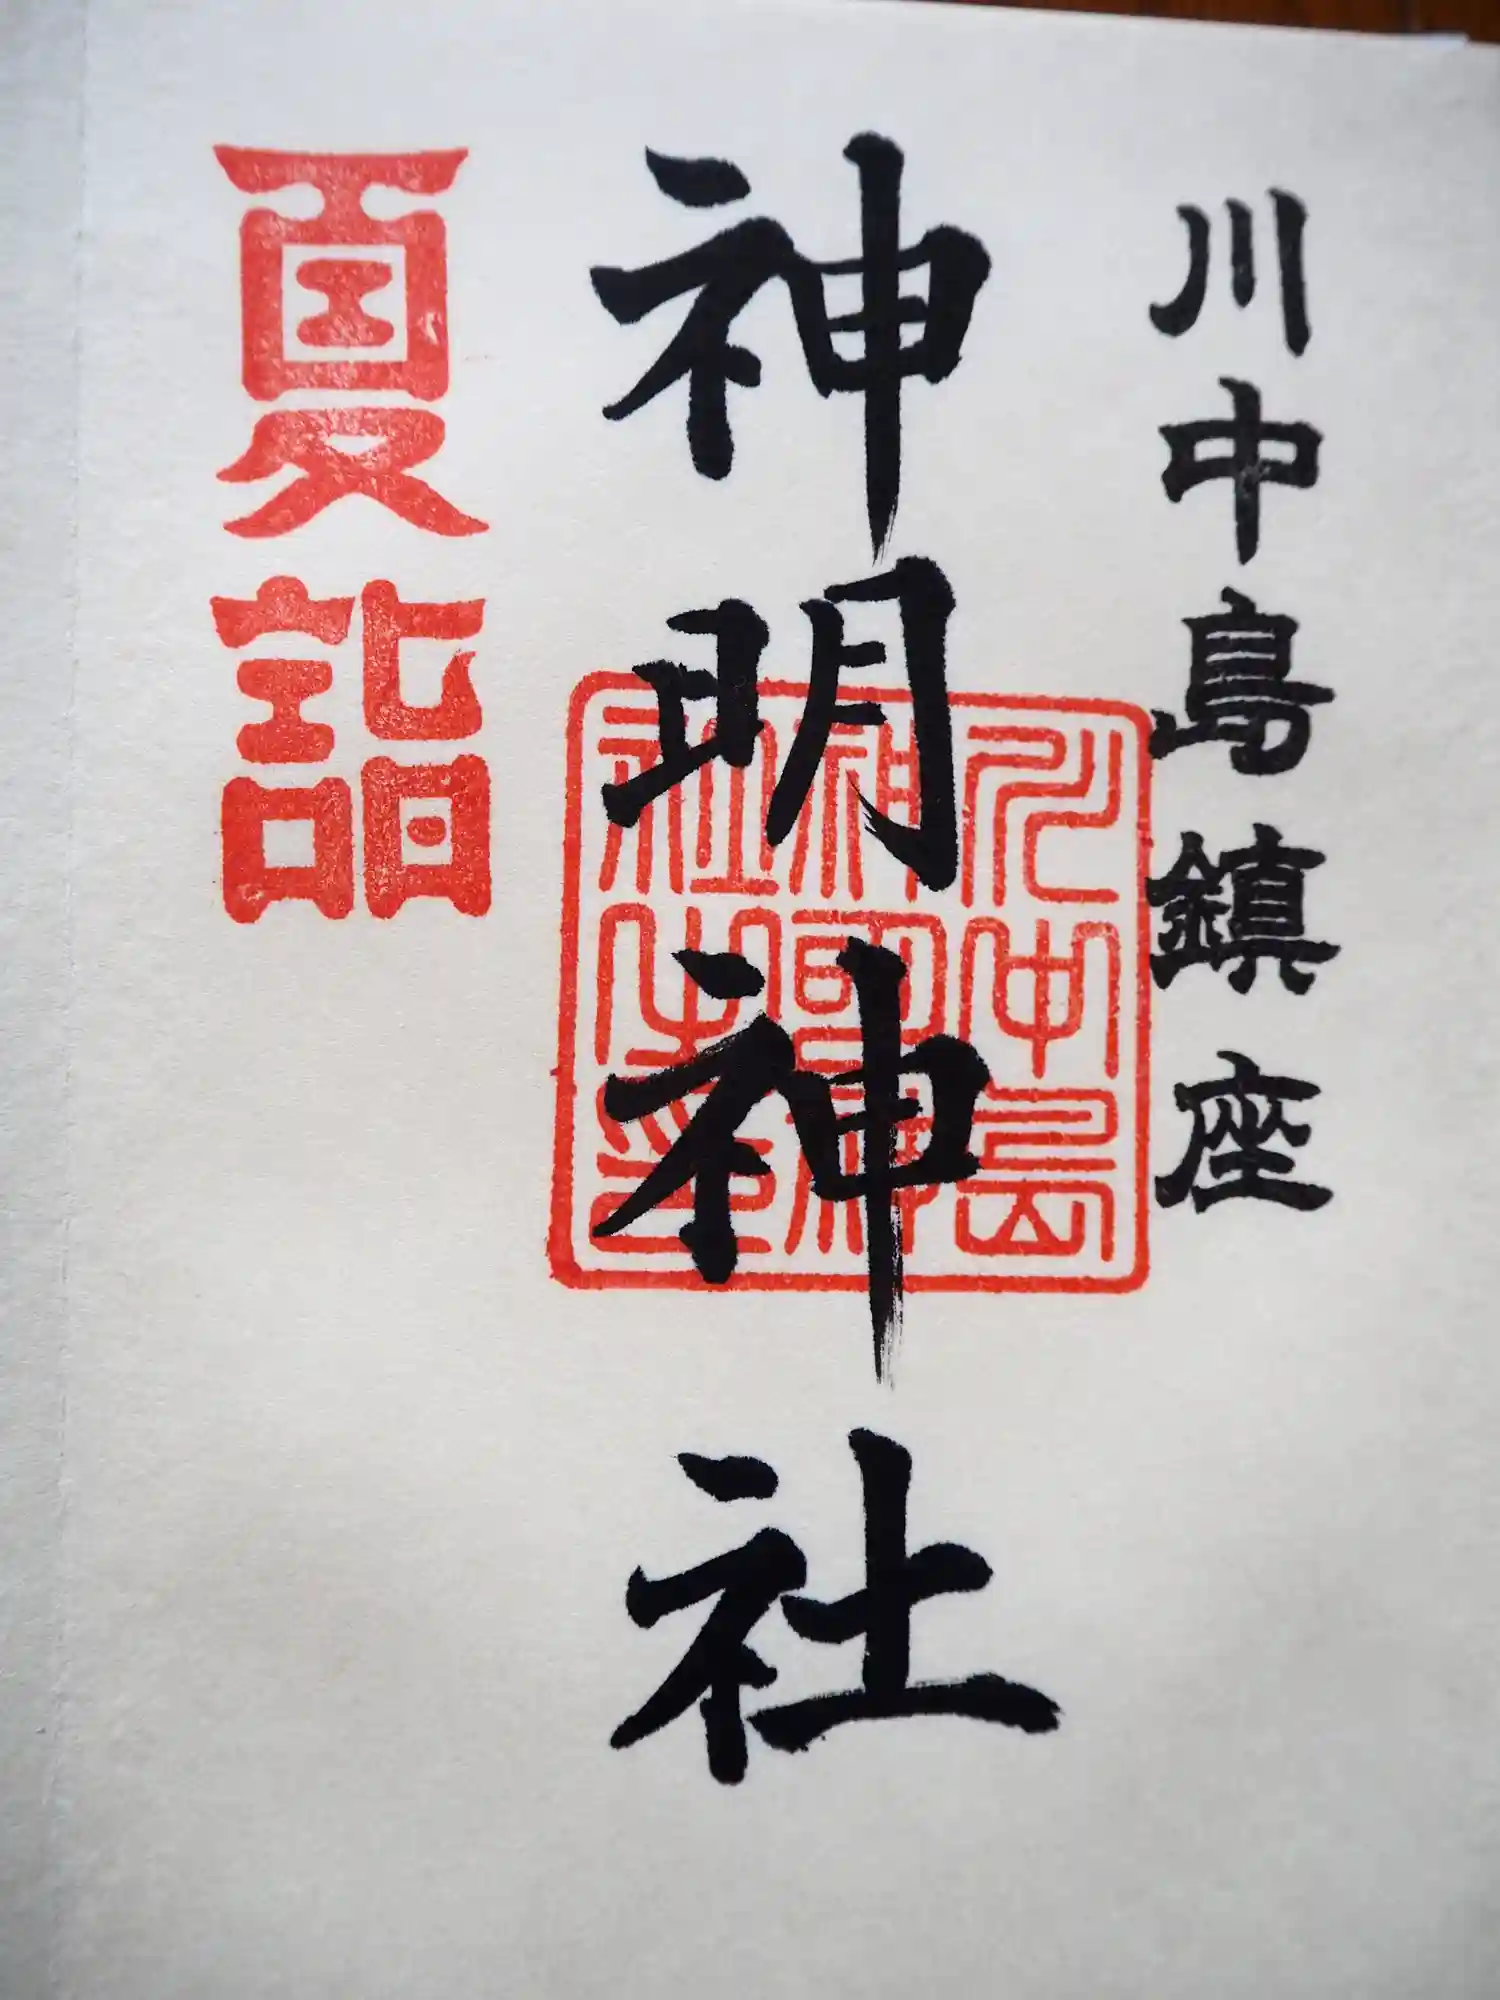 川中島鎮座
神明神社
川中島
神明神
社之印
夏詣